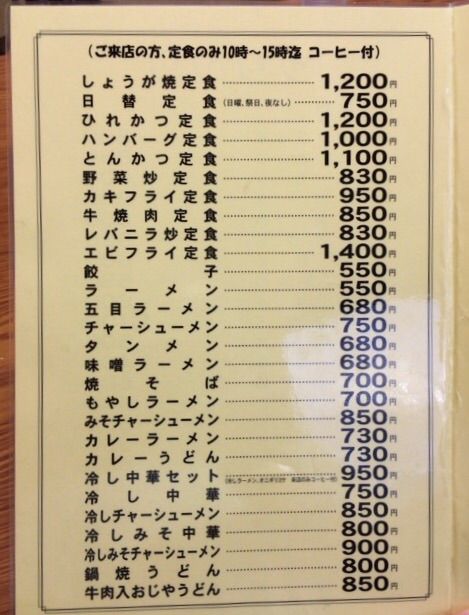 (ご来店の方、定食のみ10時～15時迄 コーヒー付)
しょうが焼定食 1,200円
日替定食 (日曜、祭日、夜なし) 750円
ひれかつ定食 1,200円
ハンバーグ定食 1,000円
とんかつ定食 1,100円
野菜炒定食 830円
カキフライ定食 950円
牛焼肉定食 850円
レバニラ炒定食 830円
エビフライ定食 1,400円
餃子 550円
ラーメン 550円
五目ラーメン 680円
チャーシューメン 750円
タンメン 680円
味噌ラーメン 680円
焼そば 700円
もやしラーメン 700円
みそチャーシューメン 850円
カレーラーメン 730円
カレーうどん 730円
冷し中華セット (冷しラーメン、オニギリ2ケ 来店のみコーヒー付) 950円
冷し中華 750円
冷しチャーシューメン 850円
冷しみそ中華 800円
冷しみそチャーシューメン 900円
鍋焼うどん 800円
牛肉入おじやうどん 850円